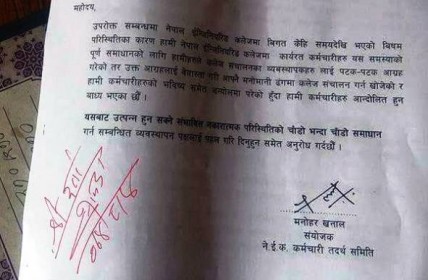 महोदय,
उपरोक्त सम्बन्धमा नेपाल ईन्जिनियरिङ कलेजमा बिगत केहि समयदेखि भएको बिषम
परिस्थितिका कारण हामी नेपाल ईन्जिनियरिङ कलेजमा कार्यरत कर्मचारीहरु यस समस्याको
पूर्ण समाधानको लागि हामीहरुले कलेज संचालनका व्यवस्थापकहरु लाई पटक-पटक आग्रह
गरेको तर उक्त आग्रहलाई बेवास्ता गरि आफ्नै मनोमानी ढंगमा कलेज संचालन गर्न खोजेको र
हामी कर्मचारीहरुको भविष्य समेत अन्योलमा परेको हुँदा हामी कर्मचारीहरु आन्दोलित हुन
बाध्य भएका छौं ।
यसबाट उत्पन्न हुन सक्ने संभावित नकारात्मक परिस्थितिको चाँडो भन्दा चाँडो समाधान
गर्न सम्बन्धित व्यवस्थापन पक्षलाई पहल गरि दिनुहुन समेत अनुरोध गर्दछौं ।
मनोहर खत्ताल
संयोजक
ने.ई.क. कर्मचारी तदर्थ समिति